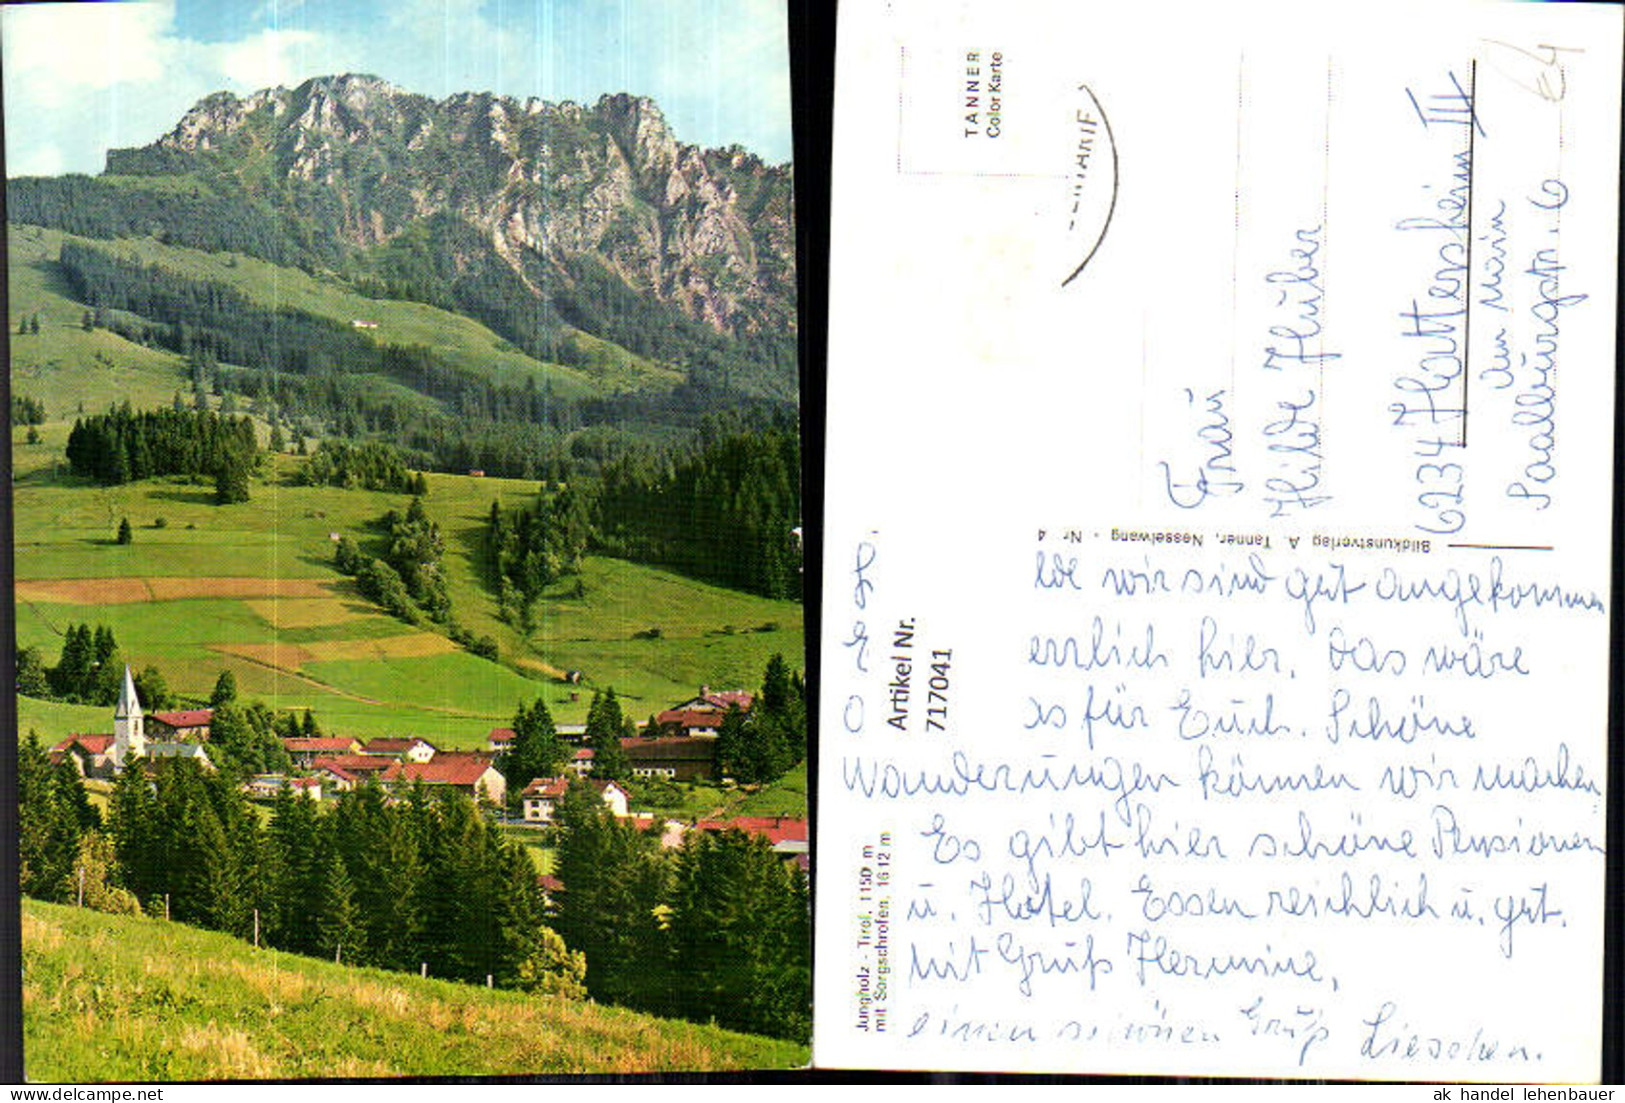 TANNER
Color Karte
Frau
Hilde Huber
6234 Hattersheim II
am Main
Saalburgstr. 6
Bildkunstverlag A. Tanner, Nesselwang - Nr 4
Artikel Nr.
717041
Jungholz - Tirol, 1150 m
mit Sorgschrofen, 1612 m
wir sind gut angekommen
hier. Das wäre
für Euch. Schöne
Wanderungen können wir machen
Es gibt hier schöne Pensionen
u. Hotel. Essen reichlich u. gut.
Mit Gruß Hermine,
einen schönen Gruß Lieschen.
ak handel lehenbauer